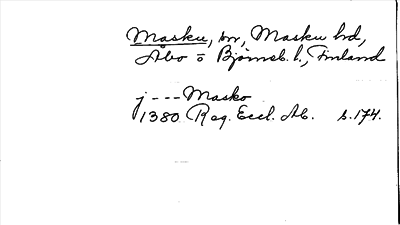 Masku, sn, Masku hd,
Åbo o Björneb. l., Finland
j --- Masko
1380 Reg. Eccl. Ab. s. 174.